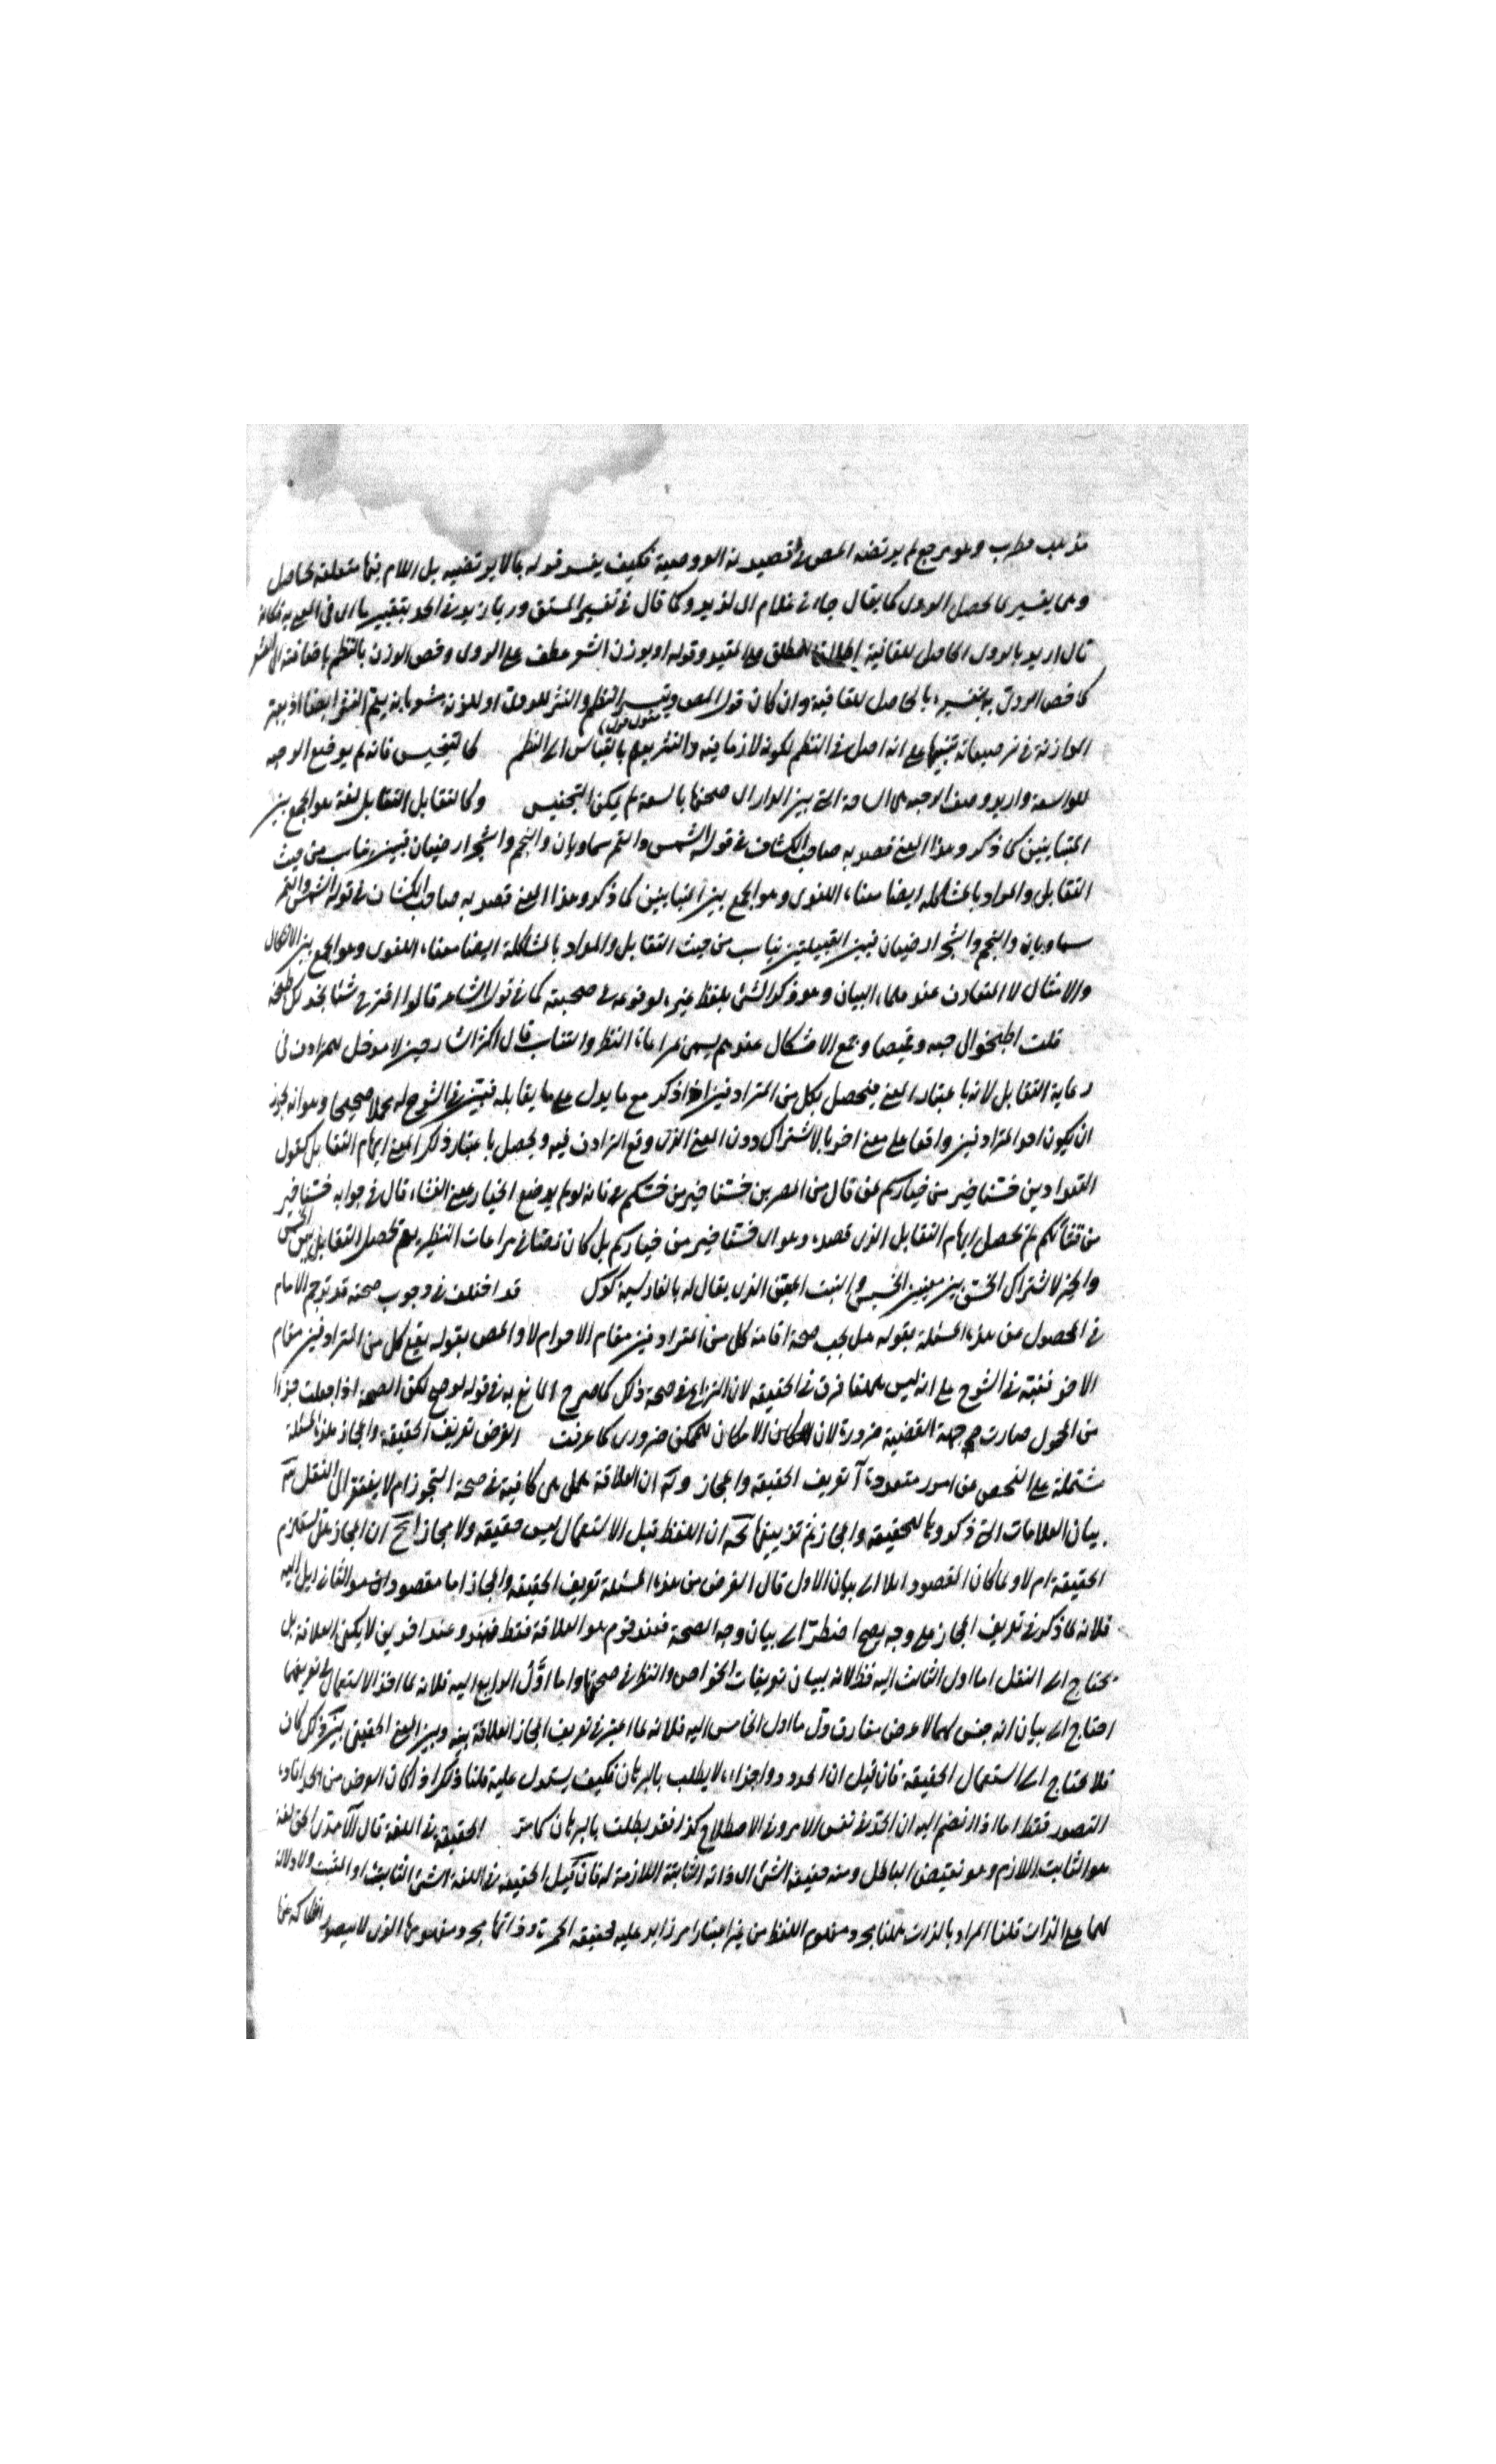 مذهب قطرب وهو مرجع لم يرتضه المص في قصيدته العروضية فكيف يفسر قوله بما لا يرتضيه بل اللام فيها متعلقة بحاصل
وهي يفسر بالمحصل الروى كما يقال جاءني غلام اى لزيد وكما قال في تفسير المستق
قال اريد بالروى الحاصل للقافية اطلاقا للمطلق على المقيد وقوله او بوزن الشعر عطف على الروى وخص الوزن بالنظم باضافته الى الشعر
كما خص الروى به بتفسيره بالحاصل للقافية وان كان قول المص وتيسر النظم والنثر للروى او للزنة
الموازنة في ترصيعاته تنبيها على انه اصل في النظم لكونه لازما فيه والنثر بالقياس الى النظم كالتجنيس فانه لم يوضع الا رحبه
للواسعة واريد وصف الرحبة هى الساحة التي بين الدار اى صحنها بالسعة لم يكن التجنيس وكالتقابل التقابل لغة هو الجمع بين
المتباينين كما ذكر وهذا المعنى قصد به صاحب الكشاف في قوله الشمس والقمر سماويان والنجم والشجر ارضيان فبين تناسب من حيث
التقابل والمراد بالمشاكلة ايضا معناه اللغوى وهو الجمع بين المتباينين كما ذكر وهذا المعنى قصد به صاحب الكشاف في قوله الشمس والقمر
سماويان والنجم والشجر ارضيان فبين القبيلتين تناسب من حيث التقابل والمراد بالمشاكلة ايضا معناه اللغوى وهو الجمع بين الاشكال
والامثال لا المتعارف عند علماء البيان وهو ذكر الشئ بلفظ غيره لوقوعه في صحبته كما في قول الشاعر قالوا اقترح شئا نجد لك طبخه
قلت اطبخوا لى جبه وقميصا وجمع الاشكال عندهم يسمى مراعاة النظر والتناسب قال اكثر الشارحين لا مدخل للمرادف في
رعاية التقابل لانه باعتبار المعنى فيحصل بكل من المترادفين اذا ذكر مع ما يدل على ما يقابله فبين في الشرح له محلا صحيحا وهو انه يجوز
ان يكون احد المترادفين واقعا على معنى اخر بالاشتراك دون المعنى الذى وقع الترادف فيه ويحصل باعتبار ذلك المعنى ايهام التقابل كقول
البغداديين خسنا خير من خياركم لمن قال من المصريين خسنا خير من خسكم فانه لو لم يوضع الخيار معنى القثاء قال في جوابه خسنا خير
من قثائكم لم يحصل ايهام التقابل الذى قصده وهو ان خسنا خير من خياركم بل كان نصا في مراعات النظير لحصل التقابل بين الخس
والخير لاشتراك الخس بين معنيين الخسيس والنبت المعين الذى يقال له بالفارسية كوك قد اختلف في وجوب صحته قد ترجم الامام
في المحصول عن هذه المسئلة بقوله هل يجب صحة اقامة كل من المترادفين مقام الاخر ام لا والمص بقوله يقع كل من المترادفين مقام
الاخر فنبه في الشرح على انه ليس ههنا فرق في الحقيقة لان النزاع في صحة ذلك كما صرح المانع به في قوله لو صح لكن الصحة اذا جعلت جزءا
من المحمول صارت جهة القضية ضرورة لان الامكان للممكن ضرورى كما عرفت الغرض تعريف الحقيقة والمجاز هذه المسئلة
مشتملة على الفحص عن امور متعددة آ تعريف الحقيقة والمجاز وب ان العلاقة هل هى كافية في صحة التجوز ام لا يفتقر الى النقل ج
بيان العلامات التي ذكروها للحقيقة والمجاز ثم تزييفها ان اللفظ قبل الاستعمال ليس حقيقة ولا مجازا ان المجاز هل يستلزم
الحقيقة ام لا ولما كان المقصود بيان الاول قال الغرض من هذه المسئلة تعريف الحقيقة والمجاز
فلانه لما ذكر في تعريف المجاز على وجه يصح اضطر الى بيان وجه الصحة فعند قوم هو العلاقة فقط وعند اخرين لا يكفى العلاقة بل
يحتاج الى النقل اما اول الثالث اليه فظ لانه بيان تعريفات الخواص والنظر في صحتها واما اول الرابع اليه فلانه لما اخذ الاستعمال في تعريفهما
احتاج الى بيان انه جنس لهما لا عرض مفارق واما اول الخامس اليه فلانه لما اعتبر في تعريف المجاز العلاقة بينه وبين المعنى الحقيقى
فلا يحتاج الى استعمال الحقيقة فان قيل ان الحد واجزاءه لا يطلب بالبرهان فكيف يستدل عليه قلنا ذلك اذا كان الغرض من الحد افادة
التصور فقط اما اذا انضم اليه ان الحد في نفس الامر وفي الاصطلاح كذا فقد يطلب بالبرهان كما مر الحقيقة في اللغة قال الآمدى الحق لغة
هو الثابت اللازم وهو نقيض الباطل ومنه حقيقة الشئ اى ذاته الثابتة اللازمة له فان قيل الحقيقة في اللغة الشئ الثابت او المثبت ولا دلالة
لهما على الذات قلنا المراد بالذات ههنا مجرد مفهوم اللفظ من غير اعتبار امر زايد عليه فحقيقة الحمرة وذاتها مجرد مفهومها الذى لا يتصور